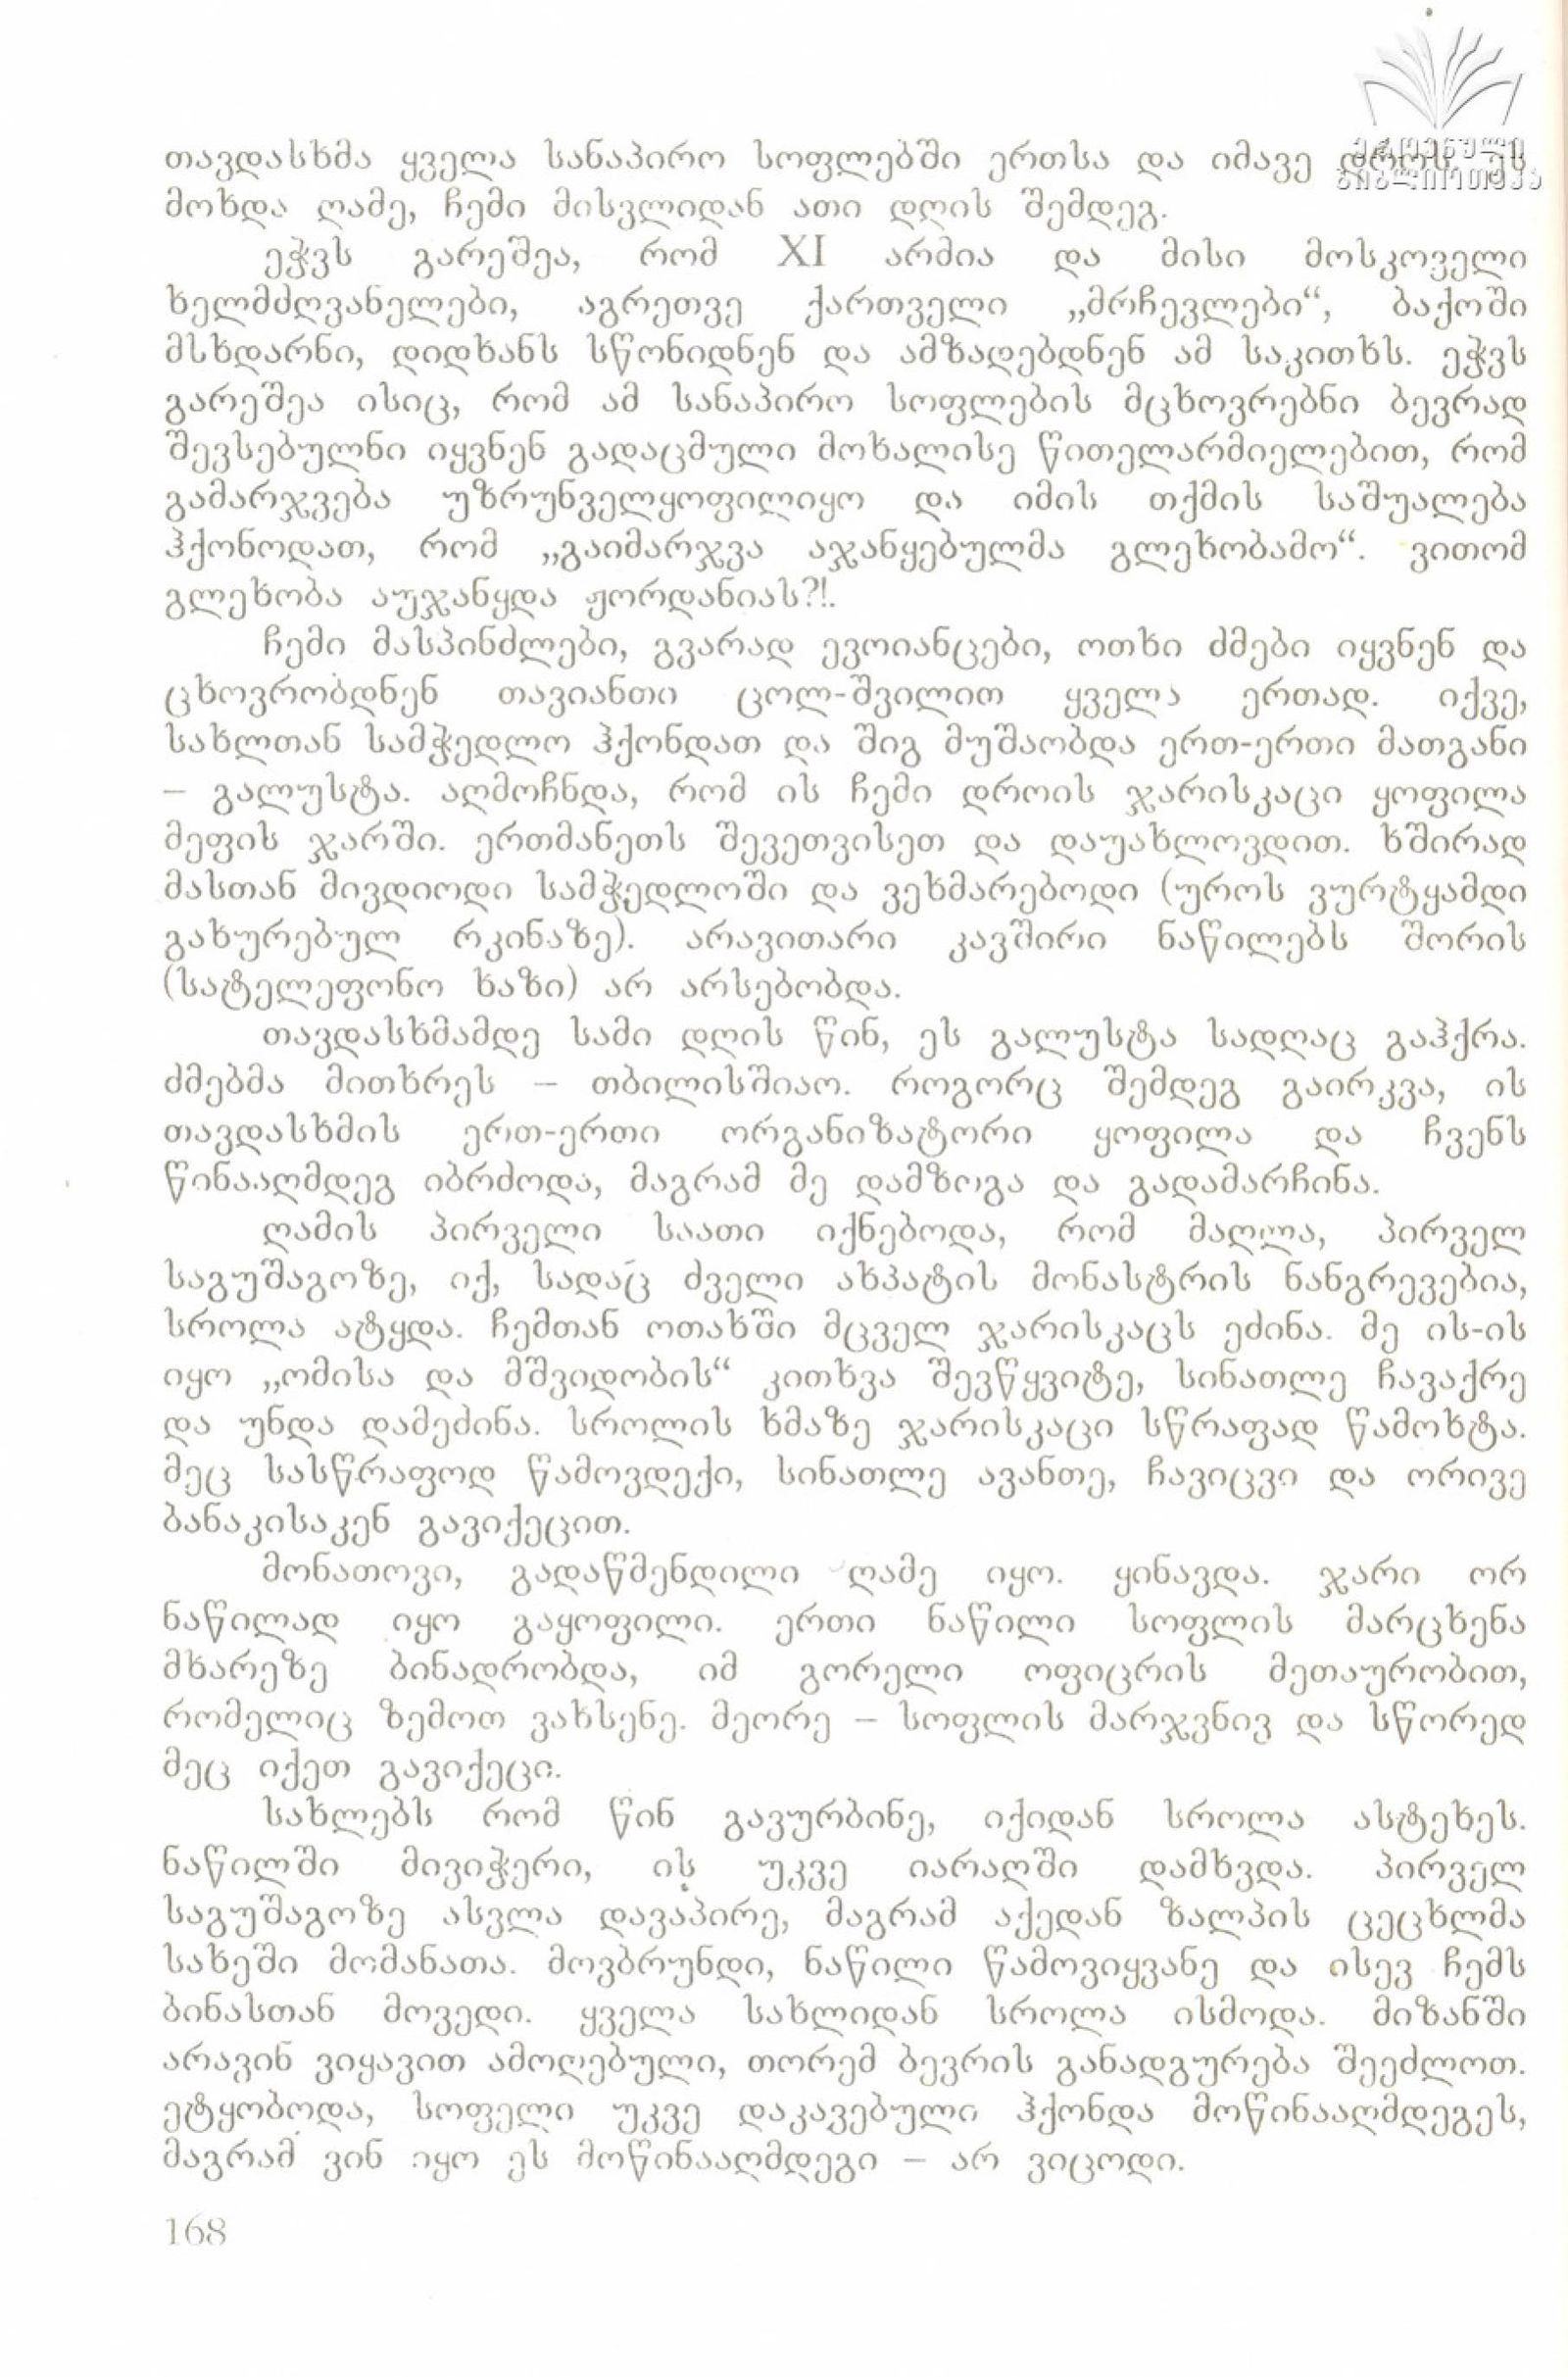 ეროვნული
ბიბლიოთეკა
თავდასხმა ყველა სანაპირო სოფლებში ერთსა და იმავე დროს. ეს
მოხდა ღამე, ჩემი მისვლიდან ათი დღის შემდეგ.
ეჭვს გარეშეა, რომ XI არმია და მისი მოსკოველი
ხელმძღვანელები, აგრეთვე ქართველი „მრჩევლები“, ბაქოში
მსხდარნი, დიდხანს სწონიდნენ და ამზადებდნენ ამ საკითხს. ეჭვს
გარეშეა ისიც, რომ ამ სანაპირო სოფლების მცხოვრებნი ბევრად
შევსებულნი იყვნენ გადაცმული მოხალისე წითელარმიელებით, რომ
გამარჯვება უზრუნველყოფილიყო და იმის თქმის საშუალება
ჰქონოდათ, რომ „გაიმარჯვა აჯანყებულმა გლეხობამო“. ვითომ
გლეხობა აუჯანყდა ჟორდანიას?!.
ჩემი მასპინძლები, გვარად ევოიანცები, ოთხი ძმები იყვნენ და
ცხოვრობდნენ თავიანთი ცოლ-შვილით ყველა ერთად. იქვე,
სახლთან სამჭედლო ჰქონდათ და შიგ მუშაობდა ერთ-ერთი მათგანი
– გალუსტა. აღმოჩნდა, რომ ის ჩემი დროის ჯარისკაცი ყოფილა
მეფის ჯარში. ერთმანეთს შევეთვისეთ და დაუახლოვდით. ხშირად
მასთან მივდიოდი სამჭედლოში და ვეხმარებოდი (უროს ვურტყამდი
გახურებულ რკინაზე). არავითარი კავშირი ნაწილებს შორის
(სატელეფონო ხაზი) არ არსებობდა.
თავდასხმამდე სამი დღის წინ, ეს გალუსტა სადღაც გაჰქრა.
ძმებმა მითხრეს – თბილისშიაო. როგორც შემდეგ გაირკვა, ის
თავდასხმის ერთ-ერთი ორგანიზატორი ყოფილა და ჩვენს
წინააღმდეგ იბრძოდა, მაგრამ მე დამზოგა და გადამარჩინა.
ღამის პირველი საათი იქნებოდა, რომ მაღლა, პირველ
საგუშაგოზე, იქ, სადაც ძველი ახპატის მონასტრის ნანგრევებია,
სროლა ატყდა. ჩემთან ოთახში მცველ ჯარისკაცს ეძინა. მე ის-ის
იყო „ომისა და მშვიდობის“ კითხვა შევწყვიტე, სინათლე ჩავაქრე
და უნდა დამეძინა. სროლის ხმაზე ჯარისკაცი სწრაფად წამოხტა.
მეც სასწრაფოდ წამოვდექი, სინათლე ავანთე, ჩავიცვი და ორივე
ბანაკისაკენ გავიქეცით.
მონათოვი, გადაწმენდილი ღამე იყო. ყინავდა. ჯარი ორ
ნაწილად იყო გაყოფილი. ერთი ნაწილი სოფლის მარცხენა
მხარეზე ბინადრობდა, იმ გორელი ოფიცრის მეთაურობით,
რომელიც ზემოთ ვახსენე. მეორე – სოფლის მარჯვნივ და სწორედ
მეც იქეთ გავიქეცი.
სახლებს რომ წინ გავურბინე, იქიდან სროლა ასტეხეს.
ნაწილში მივიჭერი, ის უკვე იარაღში დამხვდა. პირველ
საგუშაგოზე ასვლა დავაპირე, მაგრამ აქედან ზალპის ცეცხლმა
სახეში მომანათა. მოვბრუნდი, ნაწილი წამოვიყვანე და ისევ ჩემს
ბინასთან მოვედი. ყველა სახლიდან სროლა ისმოდა. მიზანში
არავინ ვიყავით ამოღებული, თორემ ბევრის განადგურება შეეძლოთ.
ეტყობოდა, სოფელი უკვე დაკავებული ჰქონდა მოწინააღმდეგეს,
მაგრამ ვინ იყო ეს მოწინააღმდეგი – არ ვიცოდი.
168